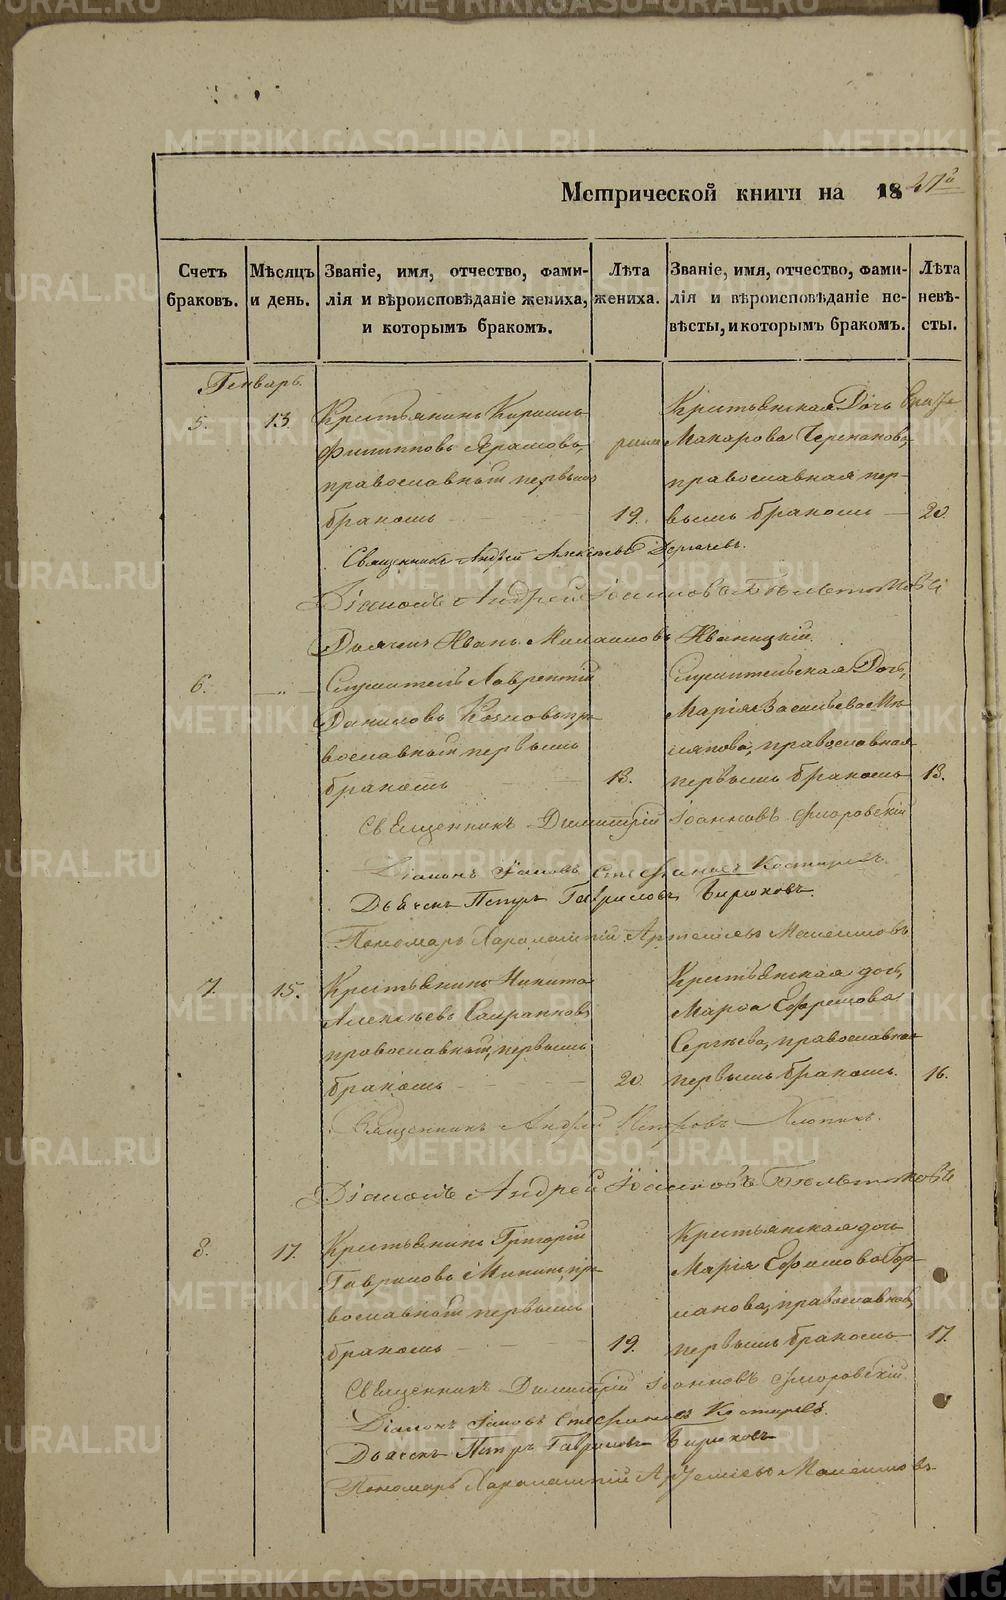 Метрической книги на 1847й
Счетъ браковъ.
Мѣсяцъ и день.
Званіе, имя, отчество, фами-
лія и вѣроисповѣданіе жениха,
и которымъ бракомъ.
Лѣта жениха.
Званіе, имя, отчество, фами-
лія и вѣроисповѣданіе не-
вѣсты, и которымъ бракомъ.
Лѣта невѣ-
сты.
Генварь.
5. 13. Крестьянинъ Кириллъ
Филипповъ
православный первымъ
бракомъ 19.
Крестьянская Дочь
Макарова
православная пер-
вымъ бракомъ 20.
Священникъ Андрей Алексѣевъ
Діаконъ Андрей Іоанновъ
Дьячекъ Иванъ Иваницкій.
6. Служитель Лаврентій
Даниловъ Козловъ пра-
вославный первымъ
бракомъ 18.
Служительская Дочь,
Марія Васильева
православная
первымъ бракомъ 18.
Священникъ Димитрій Іоанновъ Флоровскій
Діаконъ Іаковъ Стефановъ Костыревъ.
Дьячекъ Петръ Гавриловъ Бирюковъ
Пономарь Харалампій Артемьевъ
7. 15. Крестьянинъ Никита
Алексѣевъ
православный, первымъ
бракомъ 20.
Крестьянская дочь,
Марѳа Ефремова
Сергѣева, православная
первымъ бракомъ. 16.
Священникъ Андрей Петровъ Хлопинъ.
Діаконъ Андрей Іоанновъ
8. 17. Крестьянинъ Григорій
Гавриловъ Мининъ, пра-
вославный первымъ
бракомъ 19.
Крестьянская дочь
Марія Ефимова Гор-
ланова, православная,
первымъ бракомъ 17.
Священникъ Димитрій Іоанновъ Флоровскій
Діаконъ Іаковъ Стефановъ Костыревъ.
Дьячекъ Петръ Гавриловъ Бирюковъ
Пономарь Харалампій Артемьевъ
METRIKI.GASO-URAL.RU